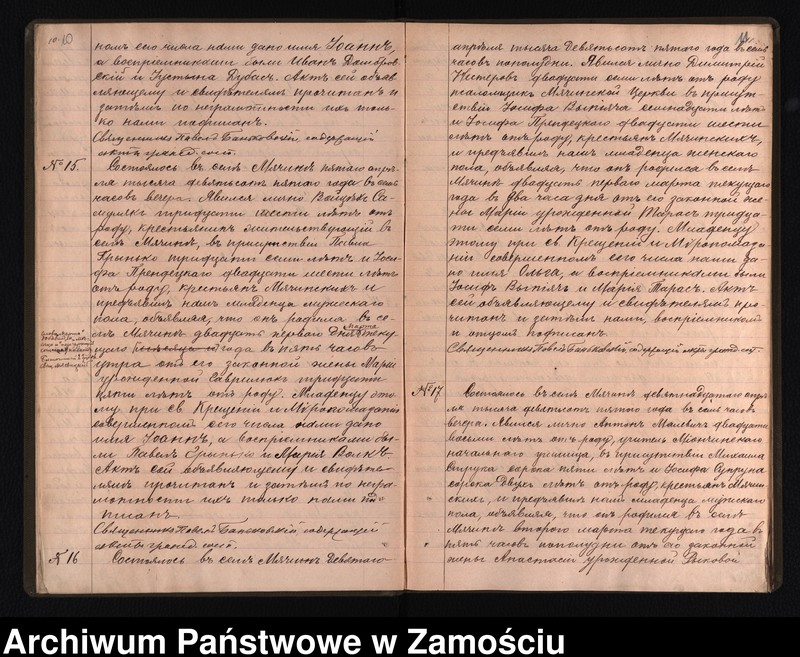 10
номъ его числа нами дано имя Іоаннъ,
а воспріемниками были Иванъ Домбров-
скій и Устына Дубасъ. Актъ сей объяв-
ляющему и свидѣтелямъ прочитанъ и
затѣмъ по неграмотности ихъ толь-
ко нами подписанъ.
Священникъ Павелъ содержащій
акты гражд. сост.
№ 15.
Состоялось въ селѣ Мячинѣ пятаго апрѣ-
ля тысяча девятьсотъ пятаго года въ семь
часовъ вечера. Явился лично Войцехъ Са-
тридцати шести лѣтъ отъ
роду, крестьянинъ жительствующій въ
селѣ Мячинѣ, въ присутствіи Павла
Грынько тридцати семи лѣтъ и Іоси-
фа Прендецкаго двадцати шести лѣтъ
отъ роду, крестьянъ Мячинскихъ и
предъявилъ намъ младенца мужескаго
пола, объявляя, что онъ родился въ се-
лѣ Мячинѣ двадцать перваго дня марта теку-
щаго года въ пять часовъ
утра отъ его законной жены Маріи
урожденной Саврилюкъ тридцати
пяти лѣтъ отъ роду. Младенцу это-
му при св. Крещеніи и Мѵропомазаніи
совершенномъ сего числа нами дано
имя Іоаннъ, а воспріемниками бы-
ли Павелъ Грынько и Марія Волкъ.
Актъ сей объявляющему и свидѣте-
лямъ прочитанъ и затѣмъ по негра-
мотности ихъ только нами под-
писанъ.
Священникъ Павелъ содержащій
акты гражд. сост.
№ 16
Состоялось въ селѣ Мячинѣ девятаго
11.
апрѣля тысяча девятьсотъ пятаго года въ семь
часовъ пополудни. Явился лично Димитрій
Нестеровъ двадцати семи лѣтъ отъ роду
псаломщикъ Мячинской Церкви въ присут-
ствіи Іосифа Выпіяча семнадцати лѣтъ
и Іосифа Прендецкаго двадцати шести
лѣтъ отъ роду, крестьянъ Мячинскихъ,
и предъявилъ намъ младенца женскаго
пола, объявляя, что онъ родился въ селѣ
Мячинѣ двадцать перваго марта текущаго
года въ два часа дня отъ его законной же-
ны Маріи урожденной Тарасъ тридца-
ти семи лѣтъ отъ роду. Младенцу
этому при св. Крещеніи и Мѵропомаза-
ніи совершенномъ сего числа нами да-
но имя Ольга, а воспріемниками были
Іосифъ Выпіячъ и Марія Тарасъ. Актъ
сей объявляющему и свидѣтелямъ про-
читанъ и затѣмъ нами, воспріемникомъ
и отцомъ подписанъ.
Священникъ Павелъ содержащій акты гражд. сост.
№ 17.
Состоялось въ селѣ Мячинѣ девятнадцатаго апрѣ-
ля тысяча девятьсотъ пятаго года въ семь часовъ
вечера. Явился лично Антонъ Малевичъ двадцати
восьми лѣтъ отъ роду, учитель Мячинскаго
начальнаго училища, въ присутствіи Михаила
сорока пяти лѣтъ и Іосифа Супруна
сорока двухъ лѣтъ отъ роду, крестьянъ Мячин-
скихъ, и предъявилъ намъ младенца мужескаго
пола, объявляя, что онъ родился въ селѣ
Мячинѣ второго марта текущаго года въ
пять часовъ пополудни отъ его законной
жены Анастасіи урожденной Быковой
Archiwum Państwowe w Zamościu